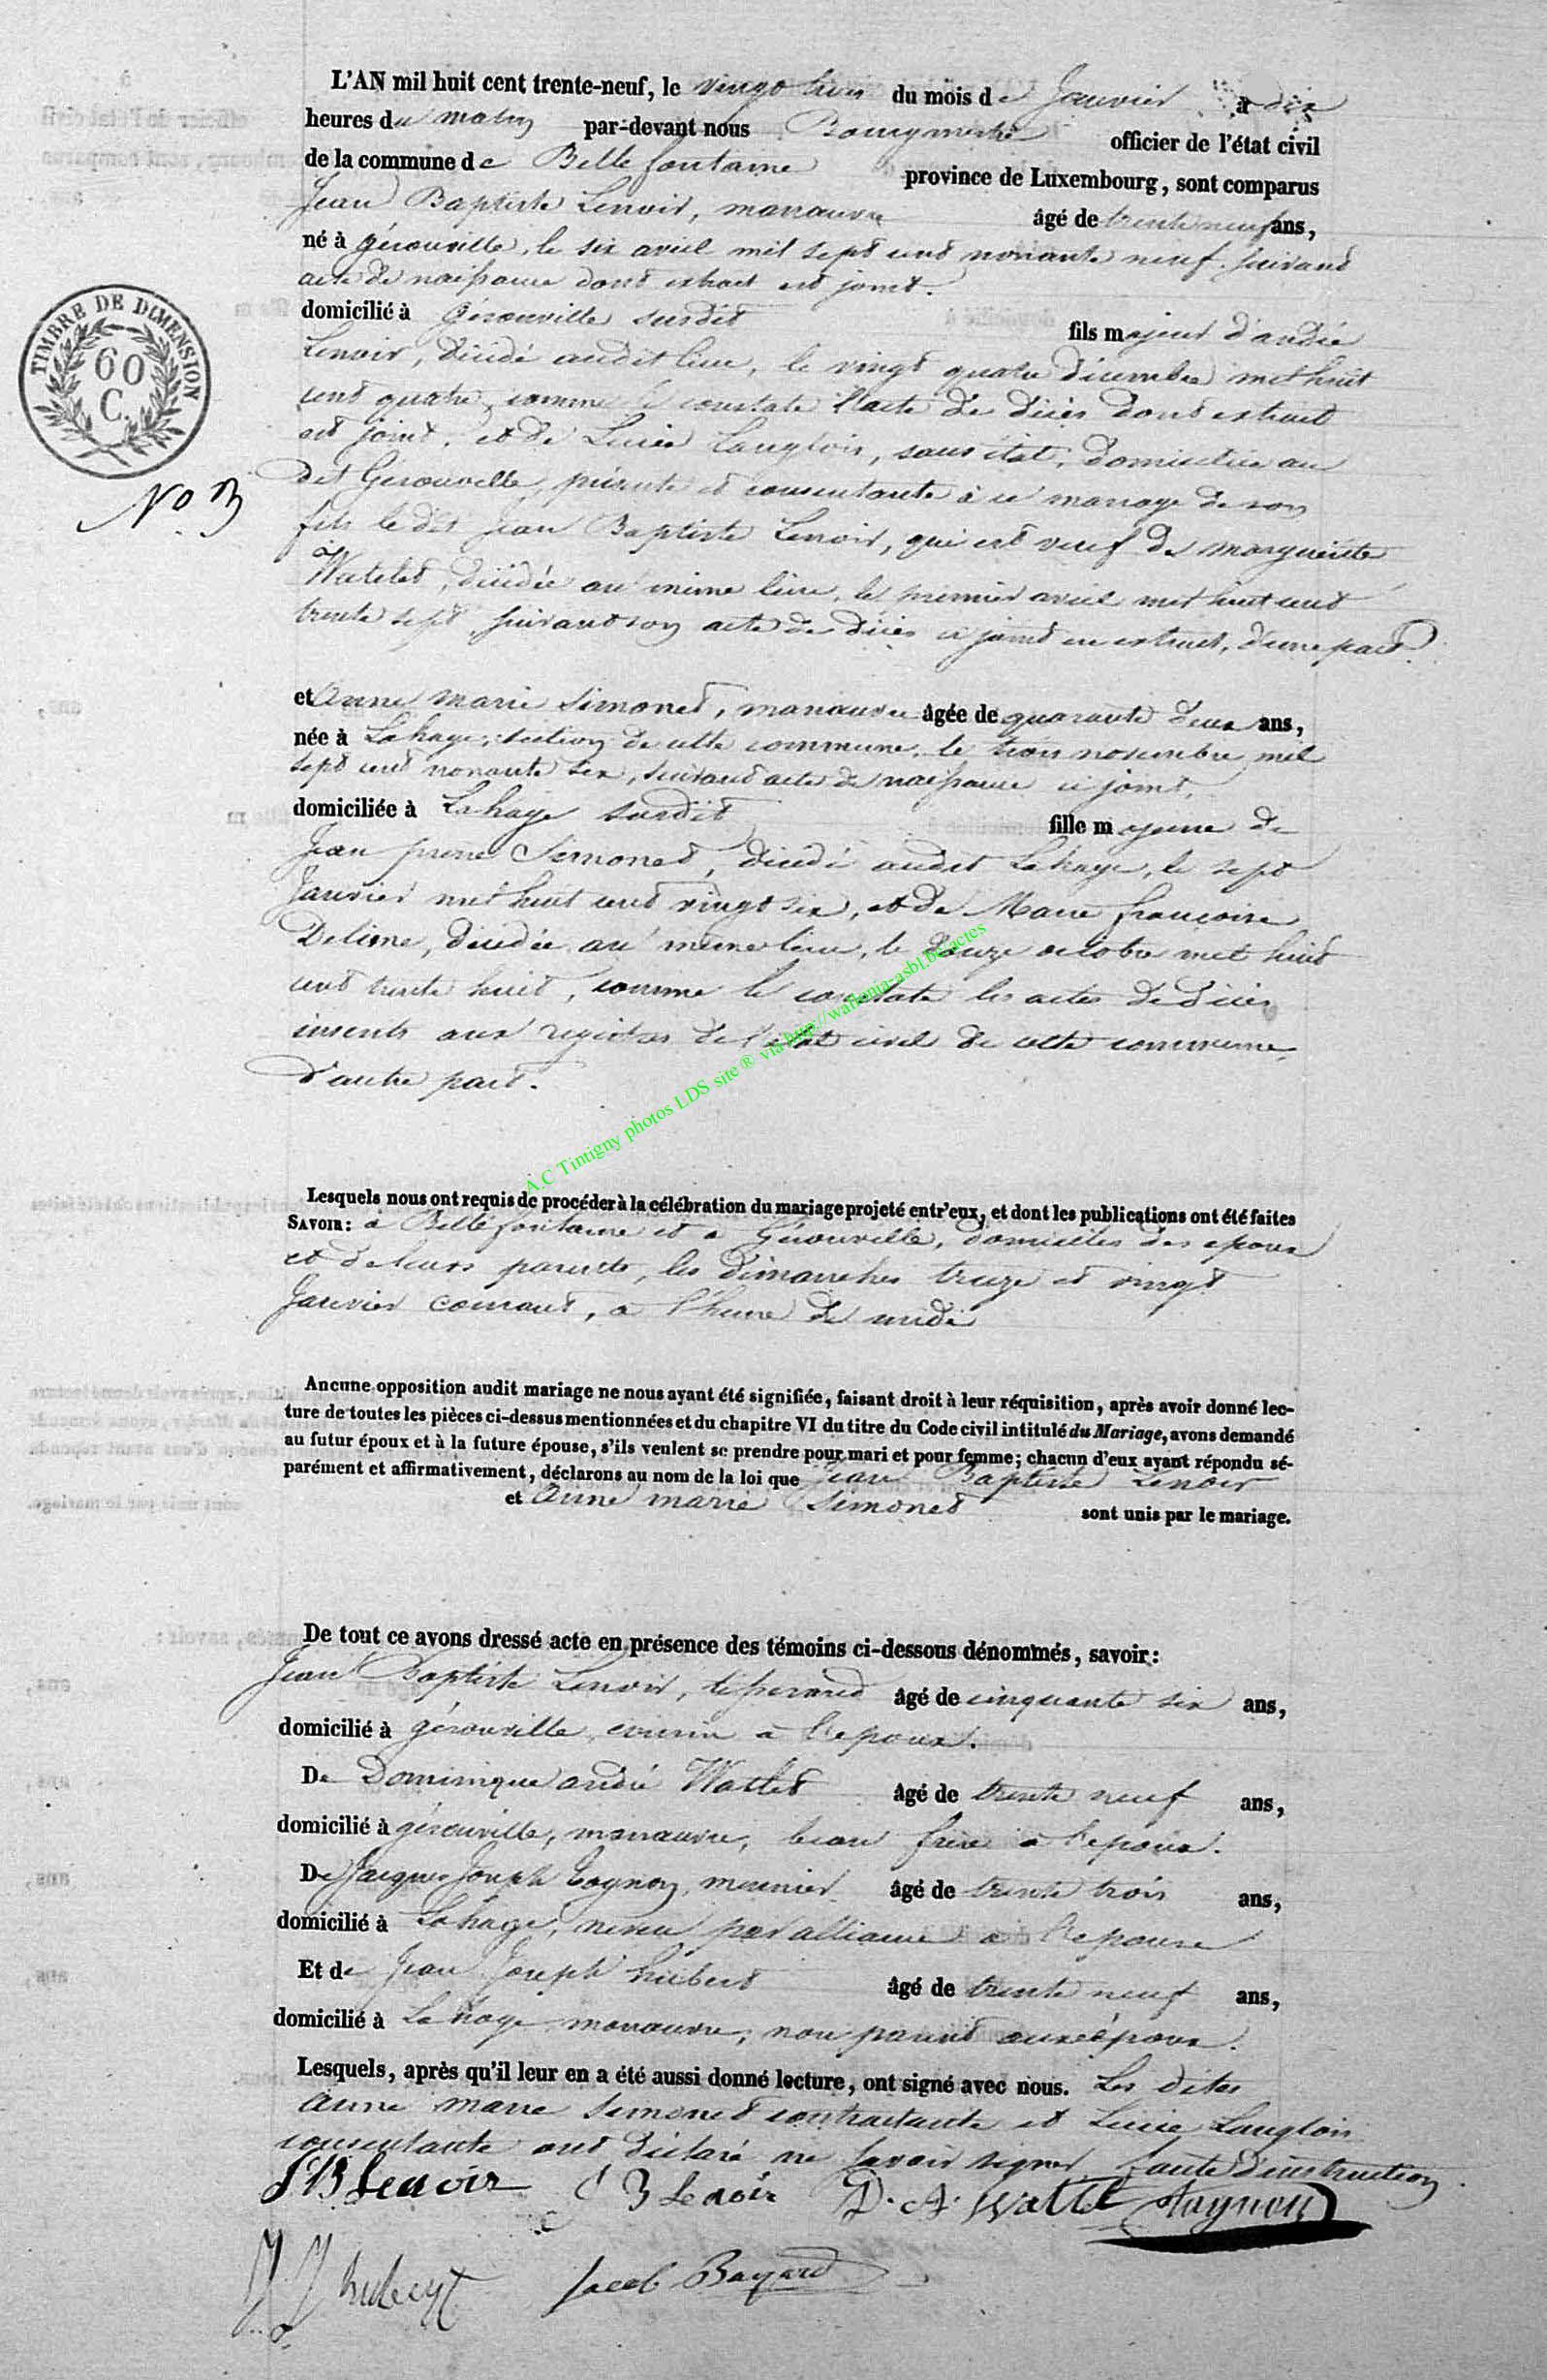 L'AN mil huit cent trente-neuf, le vingt trois du mois de Janvier à dix
heures du matin par-devant nous Bourgmestre officier de l'état civil
de la commune de Bellefontaine province de Luxembourg, sont comparus
Jean Baptiste Lenoir, manœuvre âgé de trente neuf ans,
né à gérouville, le six avril mil sept cent nonante neuf suivant
acte de naissance dont extrait est joint.
domicilié à Gérouville susdit fils majeur d'andré
Lenoir, décédé audit lieu, le vingt quatre décembre mil huit
cent quatre, comme le constate l'acte de décès dont extrait
est joint, et de Lucie Langlois, sans état, domiciliée au
dit Gerouville, présente et consentante à ce mariage de son
fils le dit Jean Baptiste Lenoir, qui est veuf de marguerite
Watelet, décédée au même lieu, le premier avril mil huit cent
trente sept, suivant son acte de décès ci joint en extrait, d'une part.
TIMBRE DE DIMENSION
60
C.
No 3
et Anne marie Simonet, manœuvre âgée de quarante deux ans,
née à Lahage, section de cette commune, le trois novembre mil
sept cent nonante six, suivant acte de naissance ci joint,
domiciliée à Lahage susdit fille majeure de
Jean pierre Simonet, décédé audit Lahage, le sept
Janvier mil huit cent vingt six, et de Marie françoise
Delisne, décédée au même lieu, le douze octobre mil huit
cent trente huit, comme le constate les actes de décès
inscrits aux registres de l'état civil de cette commune,
d'autre part.
A.C Tintigny photos LDS site ® via http://wallonia-asbl.be/actes
Lesquels nous ont requis de procéder à la célébration du mariage projeté entr'eux, et dont les publications ont été faites
SAVOIR: à Bellefontaine et à Gérouville, domiciles des epoux
et de leurs parents, les dimanches treize et vingt
Janvier courant, à l'heure de midi
Aucune opposition audit mariage ne nous ayant été signifiée, faisant droit à leur réquisition, après avoir donné lec-
ture de toutes les pièces ci-dessus mentionnées et du chapitre VI du titre du Code civil intitulé du Mariage, avons demandé
au futur époux et à la future épouse, s'ils veulent se prendre pour mari et pour femme; chacun d'eux ayant répondu sé-
parément et affirmativement, déclarons au nom de la loi que Jean Baptiste Lenoir
et Anne marie Simonet sont unis par le mariage.
De tout ce avons dressé acte en présence des témoins ci-dessous dénommés, savoir:
Jean Baptiste Lenoir, tisserand âgé de cinquante six ans,
domicilié à gérouville, cousin à l'epoux.
De Dominique andré Watlet âgé de trente neuf ans,
domicilié à gérouville, manœuvre, beau frère à l'epoux.
De Jacques Joseph Tagnon, meunier âgé de trente trois ans,
domicilié à Lahage, neveu par alliance à l'epouse
Et de Jean Joseph hubert âgé de trente neuf ans,
domicilié à Lahage manœuvre, non parent aux époux.
Lesquels, après qu'il leur en a été aussi donné lecture, ont signé avec nous. Les dites
Anne marie Simonet contractante et Lucie Langlois
consentante ont déclaré ne savoir signer faute d'instruction.
J B Lenoir J B Lenoir D. A. Watlet Tagnon
J. J. hubert Jacob Bayard